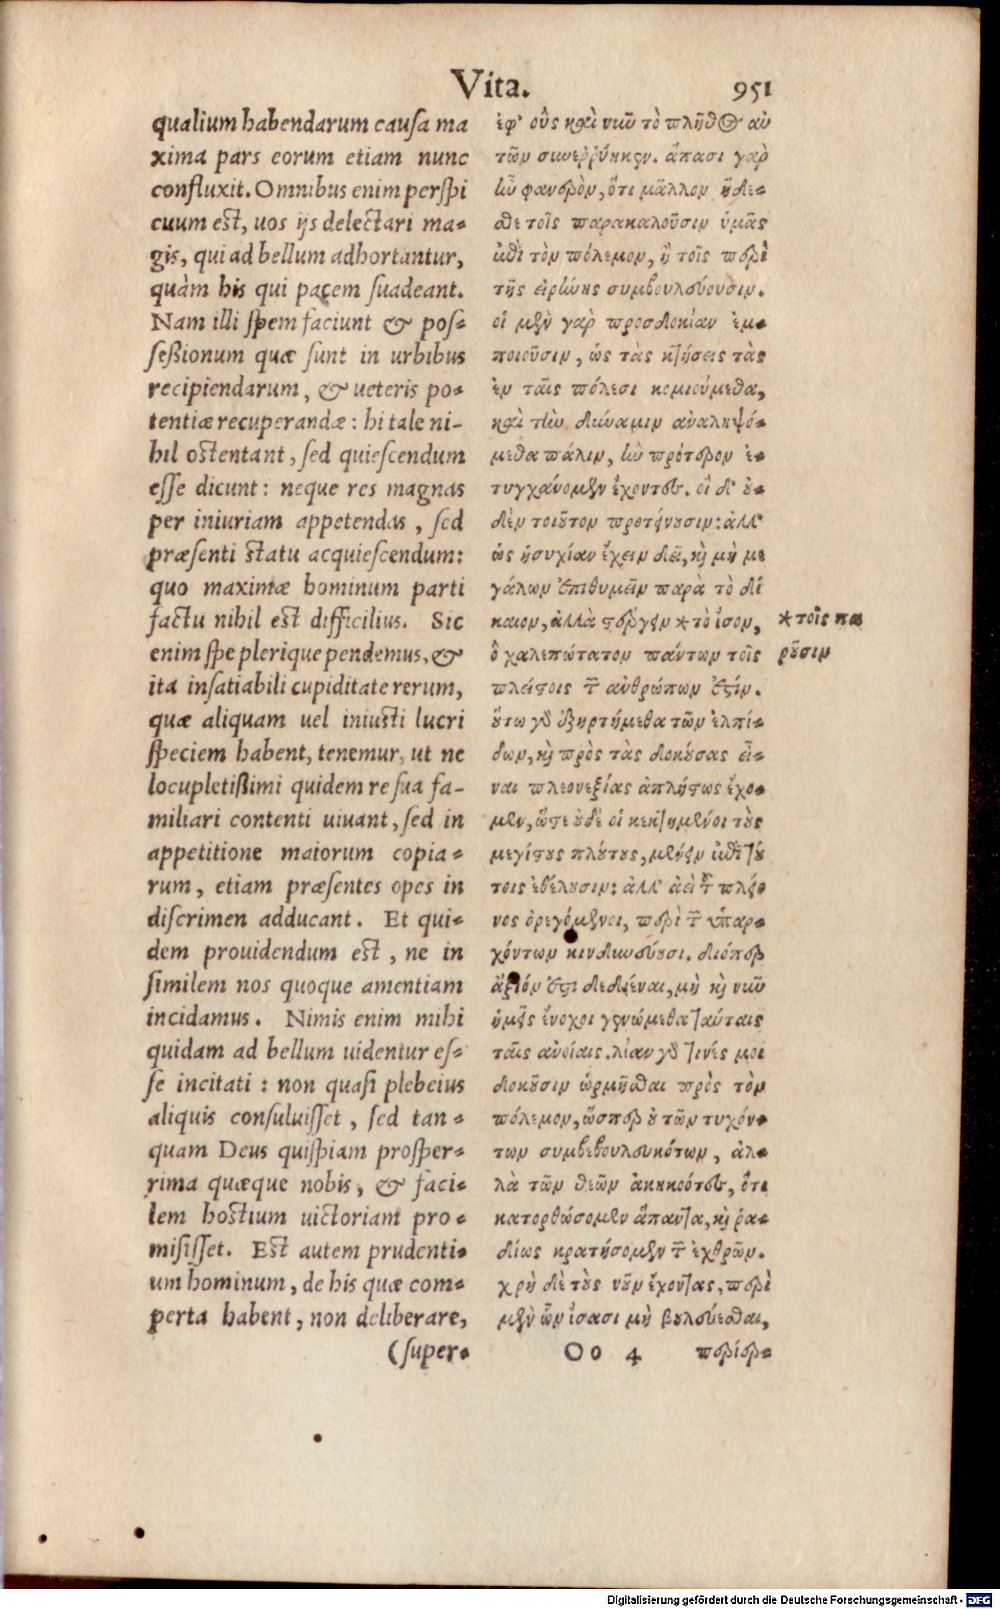 Vita.
951
qualium habendarum causa ma
xima pars eorum etiam nunc
confluxit. Omnibus enim perspi
cuum est, uos ijs delectari ma-
gis, qui ad bellum adhortantur,
quàm his qui pacem suadeant.
Nam illi spem faciunt & pos-
seßionum quæ sunt in urbibus
recipiendarum, & ueteris po-
tentiæ recuperandæ: hi tale ni-
hil ostentant, sed quiescendum
esse dicunt: neque res magnas
per iniuriam appetendas, sed
præsenti statu acquiescendum:
quo maximæ hominum parti
factu nihil est difficilius. Sic
enim spe plerique pendemus, &
ita insatiabili cupiditate rerum,
quæ aliquam uel iniusti lucri
speciem habent, tenemur, ut ne
locupletißimi quidem re sua fa-
miliari contenti uiuant, sed in
appetitione maiorum copia-
rum, etiam præsentes opes in
discrimen adducant. Et qui-
dem prouidendum est, ne in
similem nos quoque amentiam
incidamus. Nimis enim mihi
quidam ad bellum uidentur es-
se incitati: non quasi plebeius
aliquis consuluisset, sed tan-
quam Deus quispiam prosper-
rima quæque nobis, & faci-
lem hostium uictoriam pro-
misisset. Est autem prudenti-
um hominum, de his quæ com-
perta habent, non deliberare,
(super-
ἐφ' οὓς καὶ νιῶ τὸ πλῆθος αὐ
τῶν συνεῤῥύηκεν. ἅπασι γὰρ
ἰῶ φανερὸν, ὅτι μᾶλλον ἥδε-
σθε τοῖς παρακαλοῦσιν ὑμᾶς
ἐπὶ τὸν πόλεμον, ἢ τοῖς περὶ
τῆς εἰρήνης συμβουλεύουσιν.
οἱ μὲν γὰρ προσδοκίαν ἐμ-
ποιοῦσιν, ὡς τὰς κτήσεις τὰς
ἐν ταῖς πόλεσι κομιούμεθα,
καὶ τὴν δύναμιν ἀναληψό-
μεθα πάλιν, ἣν πρότερον ἐ-
τυγχάνομεν ἔχοντες. οἱ δ' ου-
δὲν τοιοῦτον προτείνουσιν: ἀλλ'
ὡς ἡσυχίαν ἔχειν δεῖ, καὶ μὴ με
γάλων ἐπιθυμεῖν παρὰ τὸ δί
καιον, ἀλλὰ στέργειν * τὸ ἴσον,
ὃ χαλεπώτατον πάντων τοῖς
πλείστοις τῶν ἀνθρώπων ἐστίν.
οὕτω γὰρ ἐξηρτήμεθα τῶν ἐλπί-
δων, καὶ πρὸς τὰς δοκούσας εἶ-
ναι πλεονεξίας ἀπλήστως ἔχο-
μεν, ὥστε οὐδὲ οἱ κεκτημένοι τοὺς
μεγίστους πλούτους, μένειν ἐπὶ τού
τοις ἐθέλουσιν: ἀλλ' ἀεὶ τοῦ πλέο
νος ὀρεγόμενοι, περὶ τῶν ὑπαρ-
χόντων κινδυνεύουσι. διόπερ
ἄξιόν ἐστι δεδιέναι, μὴ καὶ νιῶ
ἡμεῖς ἔνοχοι γενώμεθα ταύταις
ταῖς ἀνοίαις. λίαν γὰρ τινές μοι
δοκοῦσιν ὡρμῆσθαι πρὸς τὸν
πόλεμον, ὥσπερ οὐ τῶν τυχόν-
των συμβεβουλευκότων, ἀλ-
λὰ τῶν θεῶν ἀκηκοότες, ὅτι
κατορθώσομεν ἅπαντα, καὶ ῥα-
δίως κρατήσομεν τῶν ἐχθρῶν.
χρὴ δὲ τοὺς νοῦν ἔχοντας, περὶ
μὲν ὧν ἴσασι μὴ βουλεύεσθαι,
* τοῖς πα
ροῦσιν
Oo 4
περίερ-
Digitalisierung gefördert durch die Deutsche Forschungsgemeinschaft - DFG